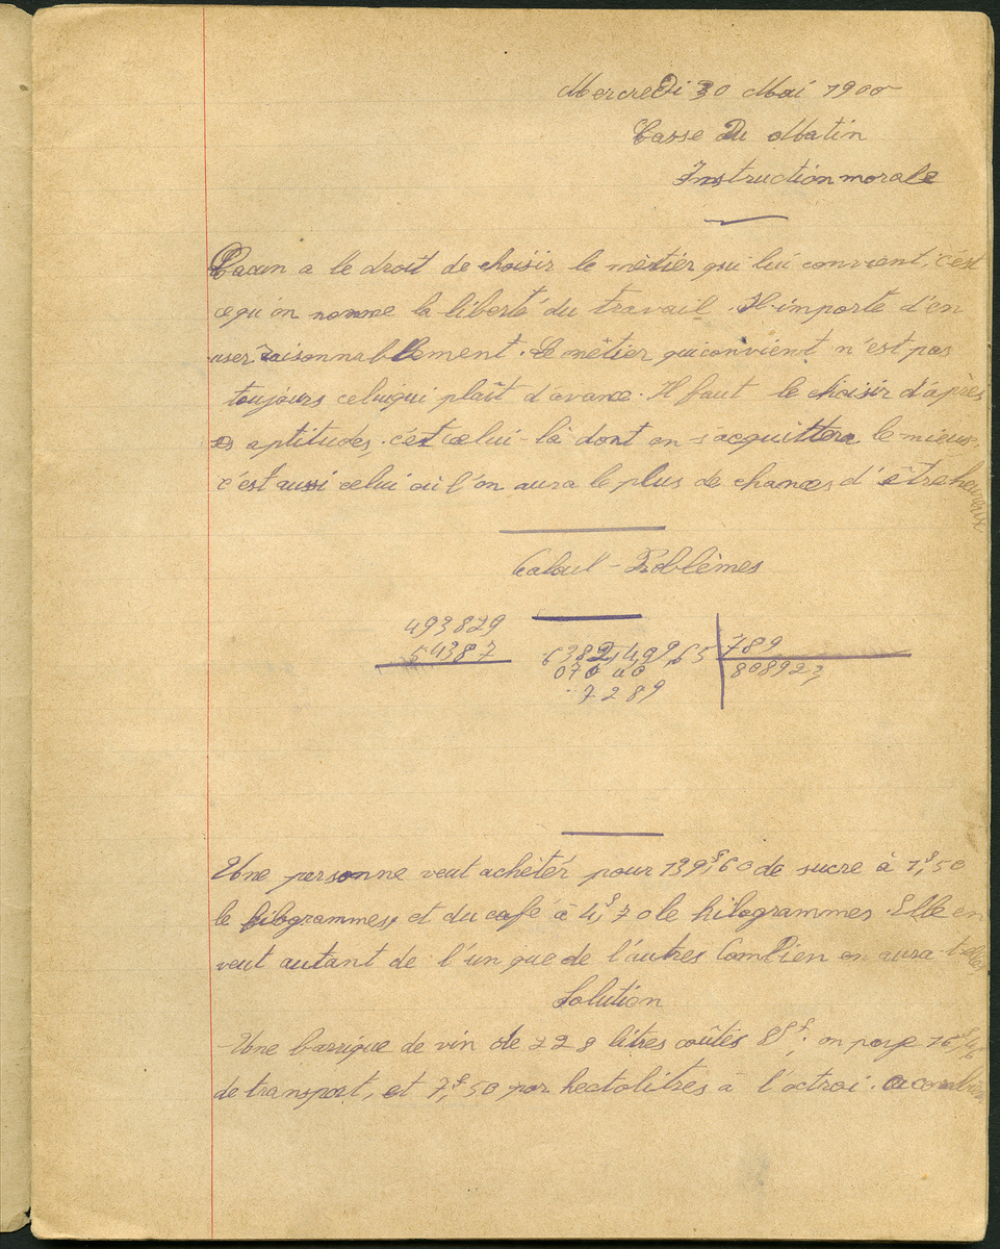 Mercredi 30 Mai 1900
Casse du Matin
Instruction morale
Chacun a le droit de choisir le métier qui lui convient, c'est
ce qu'on nomme la liberté du travail. Il importe d'en
user raisonnablement. Le métier qui convient n'est pas
toujours celui qui plaît d'avance. Il faut le choisir d'après
ses aptitudes, c'est celui-là dont on s'acquittera le mieux,
c'est aussi celui où l'on aura le plus de chances d'être heureux
Calcul - Problèmes
493829
54387
6382,499,65 789
070 808923
7289
Une personne veut achéter pour 139f,60 de sucre à 1f,50
le kilogrammes, et du café à 4f,70 le kilogrammes. Elle en
veut autant de l'un que de l'autres Combien en aura-t-elle
Solution
Une barrique de vin de 228 litres coûtes on paye
de transport, et 7f,50 par hectolitres à l'octroi. a combien